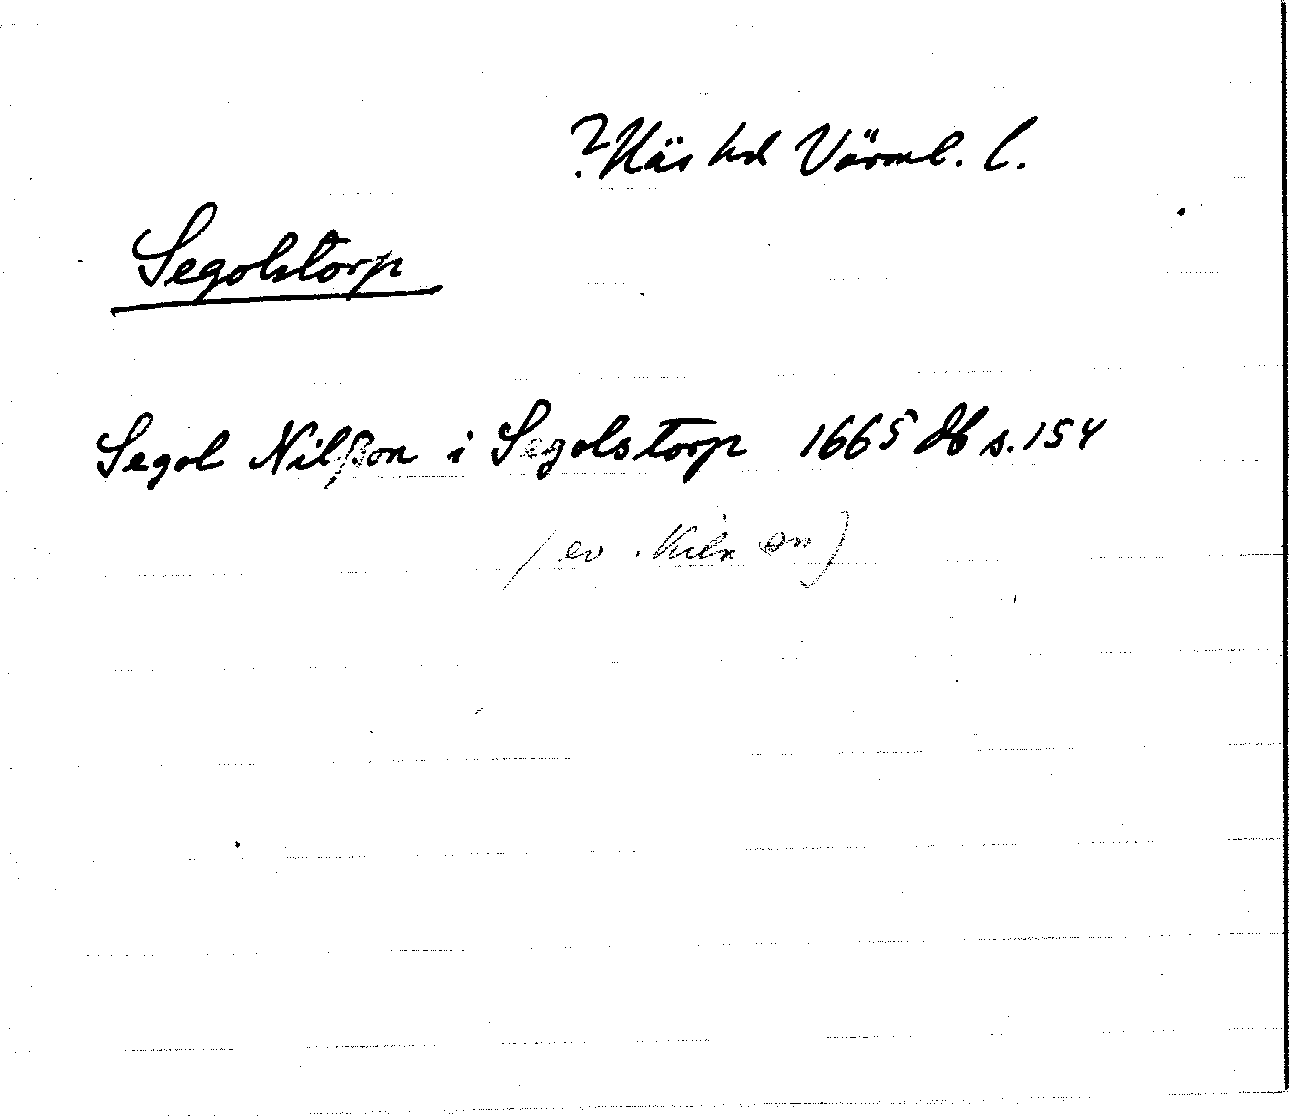 ? Näs hd Värml. l.
Segolstorp
Segol Nilßon i Segolstorp 1665 db s. 154
(ev.